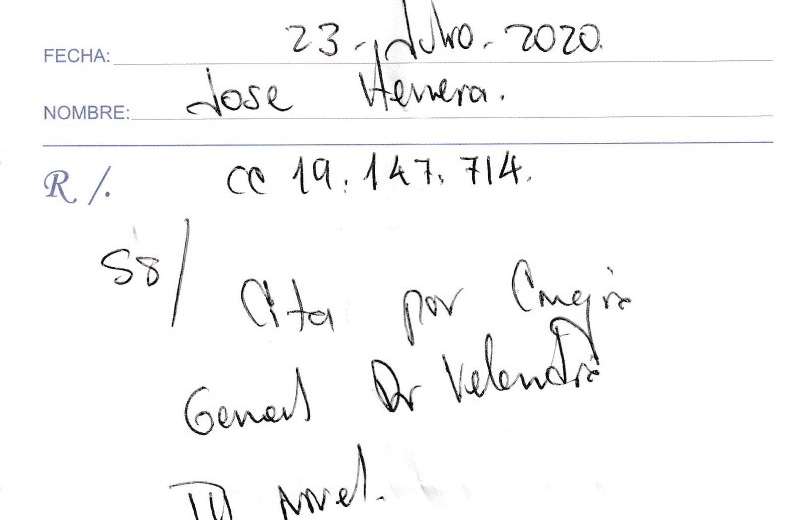 FECHA: 23. Julio. 2020.
NOMBRE: Jose Herrera.
R/. CC 19.147.714.
SS/ Cita por Cirugia
General Dr Velandia
III nivel.